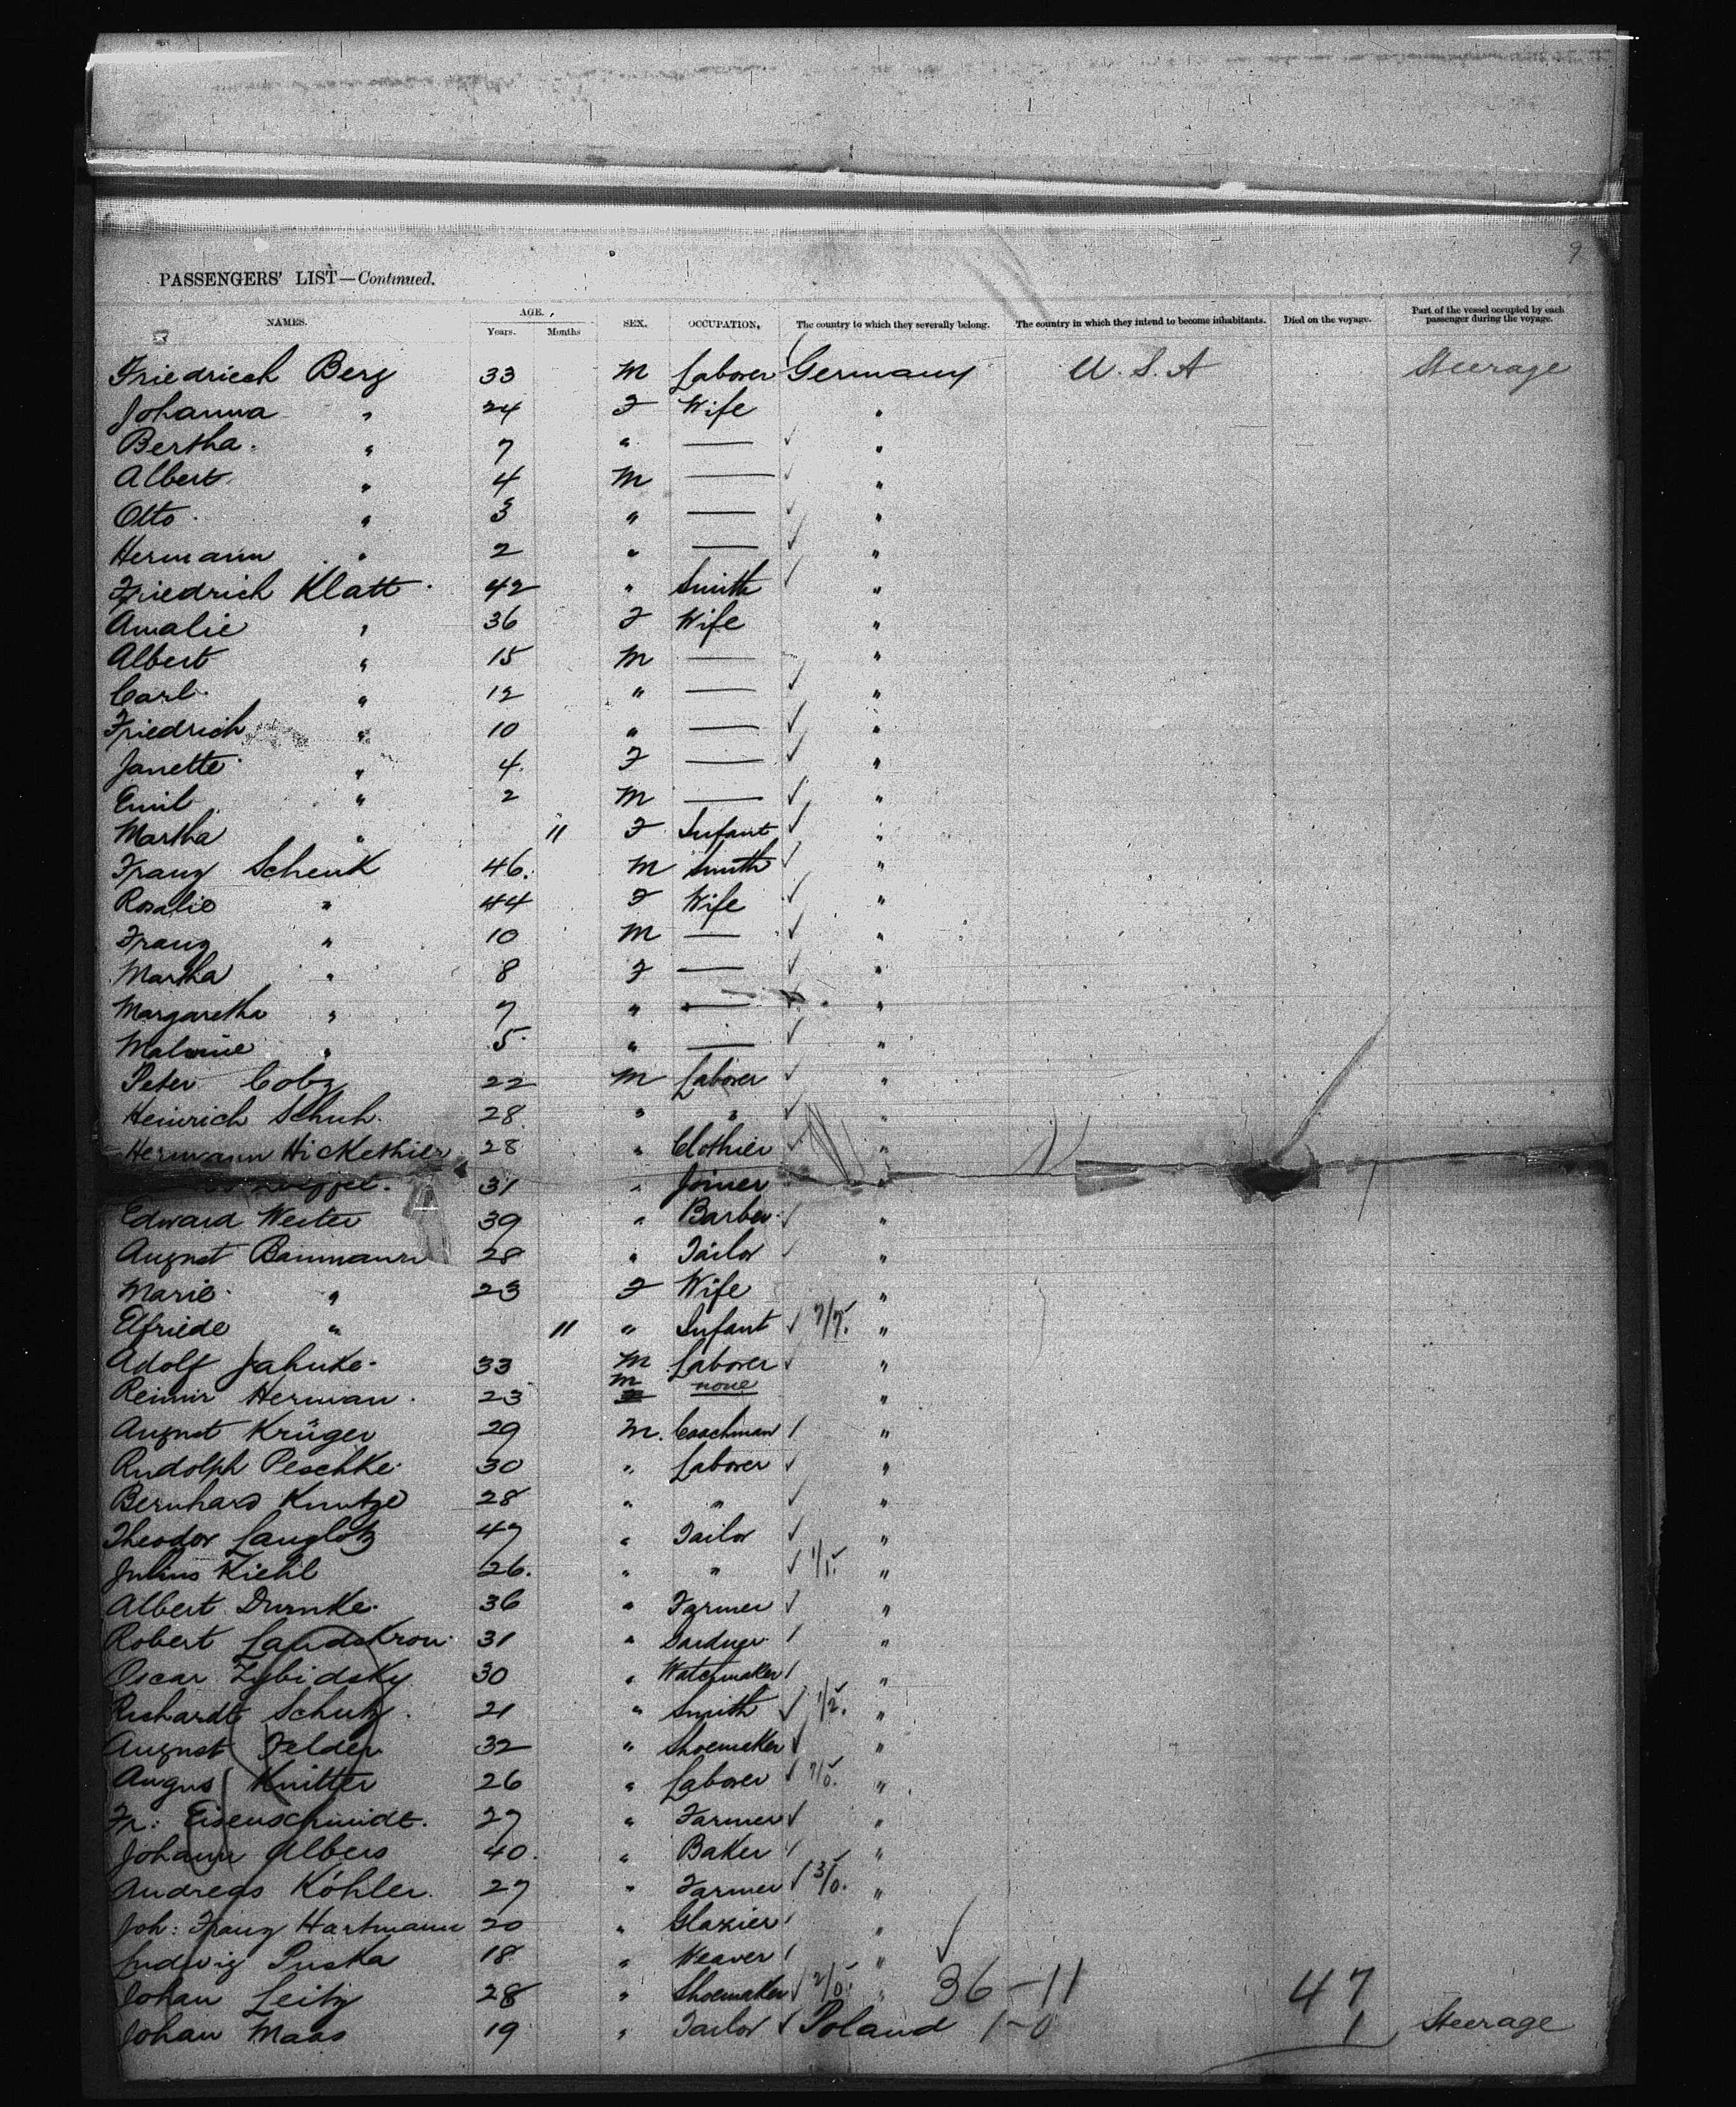 9
PASSENGERS' LIST—Continued.
NAMES. AGE. Years. Months SEX. OCCUPATION. The country to which they severally belong. The country in which they intend to become inhabitants. Died on the voyage. Part of the vessel occupied by each passenger during the voyage.
Friedrich Berg 33 M Laborer Germany U.S.A Steerage
Johanna " 24 F Wife "
Bertha " 7 " — "
Albert " 4 M — "
Otto " 3 " — "
Hermann " 2 " — "
Friedrich Klatt 42 " Smith "
Amalie " 36 F Wife "
Albert " 15 M — "
Carl " 12 " — "
Friedrich " 10 " — "
Janette " 4 F — "
Emil " 2 M — "
Martha " 11 F Infant "
Franz Schenk 46 M Smith "
Rosalie " 44 F Wife "
Franz " 10 M — "
Martha " 8 F — "
Margaretha " 7 " — "
Malwine " 5 " — "
Peter Cobz 22 M Laborer "
Heinrich Schuh 28 " " "
Hermann Hickethier 28 " Clothier "
31 " Joiner "
Edward Wester 39 " Barber "
August Baumann 28 " Tailor "
Marie " 23 F Wife "
Elfriede " 11 " Infant 7/7. "
Adolf Jahnke 33 M Laborer "
Reimir Herman 23 M none "
August Krüger 29 M. Coachman "
Rudolph Peschke 30 " Laborer "
Bernhard Kuntze 28 " " "
Theodor Langlotz 47 " Tailor "
Julius Kiehl 26. " " 1/1. "
Albert Dumke 36 " Farmer "
Robert Landskron 31 " Gardner "
Oscar Zybidsky 30 " Watchmaker "
Richardt Schulz 21 " Smith 1/2. "
August Felder 32 " Shoemaker "
August Knitter 26 " Laborer 7/0. "
Fr: Eisenschmidt. 27 " Farmer "
Johann Albers 40. " Baker "
Andreas Köhler. 27 " Farmer 3/0. "
Joh: Franz Hartmann 20 " Glazier "
Ludwig Puska 18 " Weaver "
Johan Leitz 28 " Shoemaker 2/0. " 36-11 47
Johan Maas 19 " Tailor Poland 1-0 1 Steerage